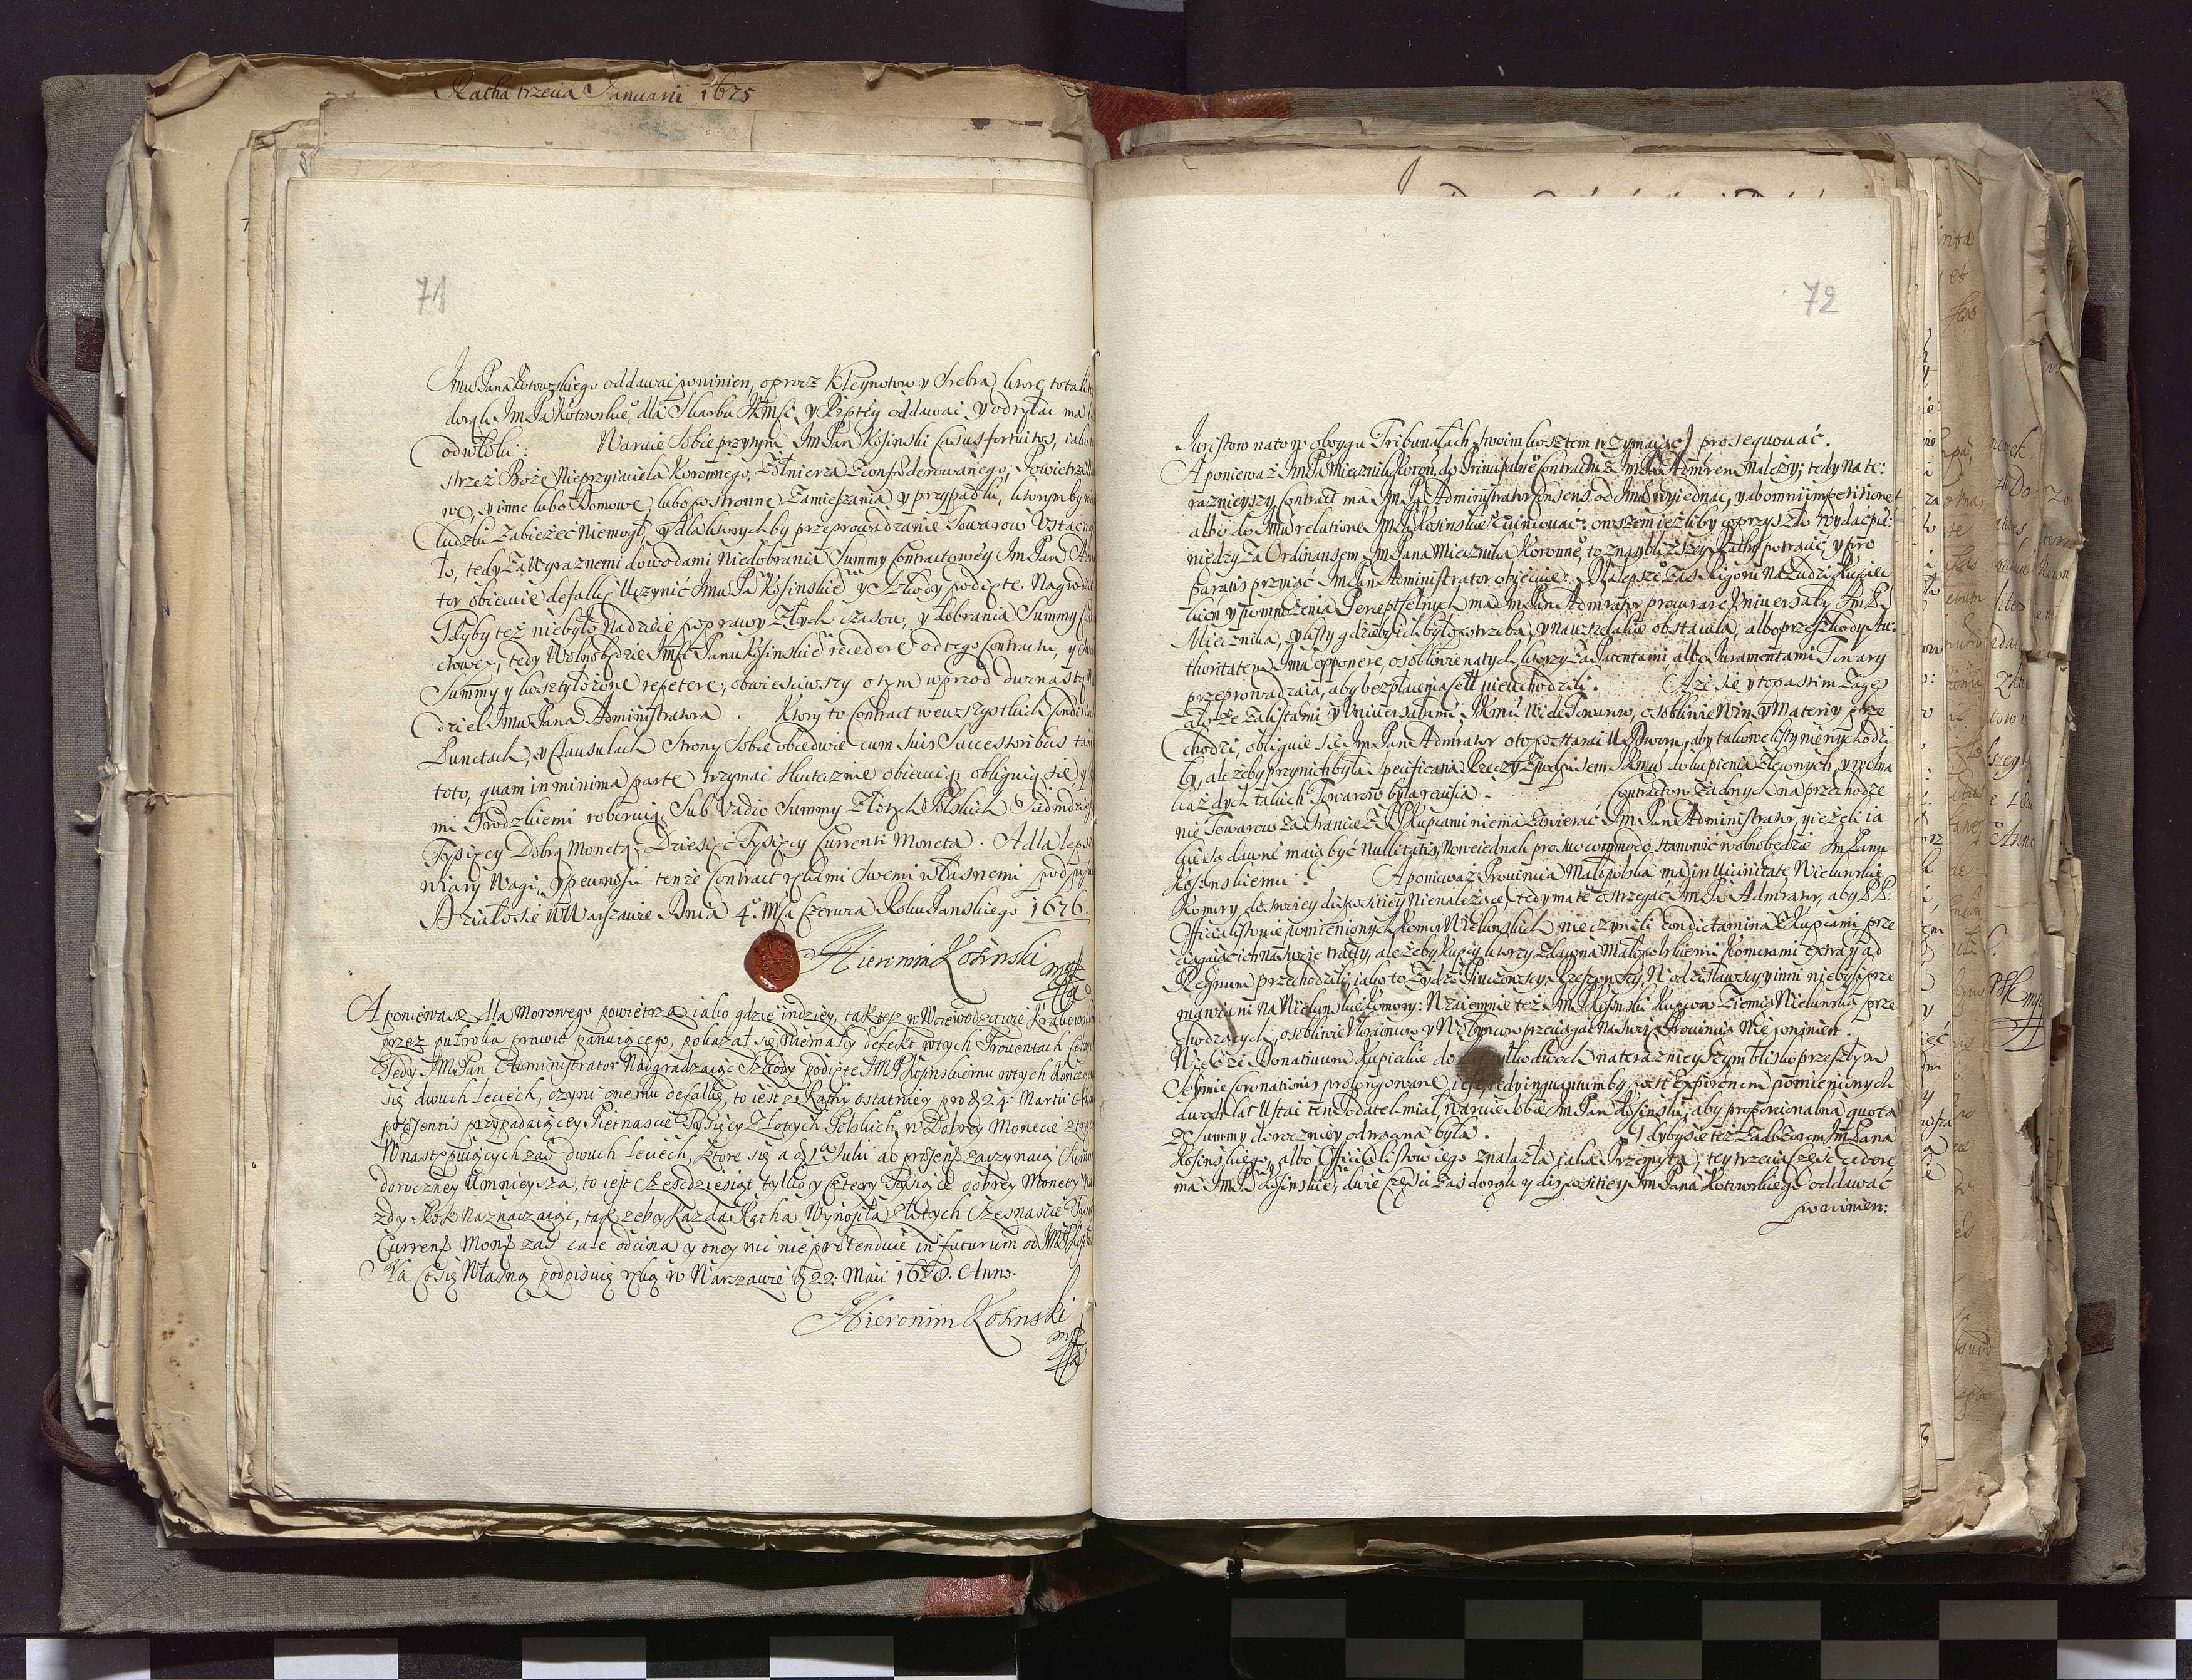 Ratha trzecia Januarii 1675
71
Jmu Pana Kotowskiego oddawać powinien, oprocz Kleynotow y Srebra, ktore totalit
do rąk Jm Pa Kotowskieo, dla Skarbu JKMsci, y Rzptey oddawai, y odrydai ma
odwłoki: Waruie sobie przytym Jm Pan Kosinski Casus fortuitos, iako
strzez Boże Nieprzyiaciela Koronnego, Zołnierza Zconfoederowanego, Powietrza
we, y inne lubo Domowe, lubo postronne Zamieszania y przypadki, ktorym by
ludzku Zabieżeć Niemogł, y dla ktorych by przeprowadzanie Towarow Ustać
ło, tedy Za Wyraznemi dowodami Niedobrania Summy Contractowey Jm Pan
tor obiecuie defalkę Uczynić Jmu Pu Kosinskieo y Szkody podięte Nagrodzić
Gdyby też niebyło Nadzieie poprawy Złych czasow, y dobrania Summy
ctowey, tedy Wolno będzie Jmści Panu Kosinskieo recedere od tego Contractu, y
Summy y koszty łożone repetere, obwiesciwszy o tym wprzod dwanasty
dziel Jmu Pana Administratora. Ktory to Contract we wszystkich Conditi
Punctach, y Clausulach Strony Sobie obiedwie cum suis Successoribus tam
toto, quam in minima parte trzymać skutecznie obiecuią, obliguią się, y
mi Grodzkiemi roboruią, Sub Vadio Summy Złotych Polskich Siedmdzie
Tysięcy Dobrą Monetą, Dziesięć Tysięcy Currenti Moneta. A dla lepsz
wiary Wagi, y pewności tenże Contract rękami swemi własnemi podpisu
Działo się w Warszawie Dnia 4o Msca Czerwca Roku Panskiego 1676.
Hieronim Kosinski
mpp
A poniewasz dla Morowego powietrza iako gdzie indziey, tak też w Woiewodztwie Krakowsk
przez pułroka prawie panuiącego, pokazał się Niemały defekt w tych Proventach
Tedy JM Pan Administrator Nadgradzaiąc Szkody podięte JMP Kosinskiemu w tych Kończą
się dwuch leciech, czyni onemu defalkę, to iest z Rathy ostatniey pro d 24 Martii
presentis przypadaiącey Pietnascie Tysięcy Złotych Polskich, w Dobrey Monecie
W następuiących zaś dwuch leciech, ktore się a d 1a Julii ao presens zaczynaią Summ
doroczney Umnieysza, to iest Szescdziesiąt tylko y Cztery Tysiące dobrey Monety
żdy Rok Naznaczaiąc, tak żeby każda Ratha Wynosiła Złotych Szesnascie Tys
Currens Mons zaś całe odcina y oney nic nie praetenduie in futurum od JMP
Na Co się Własną podpisuię ręką w Warszawie d 22. Maii 1678. Anno.
Hieronim Kosinski
mpp
72
Juristow na to w oboygu Tribunałach swoim kosztem trzymaiąc prosequować.
A ponieważ Jm Pa Miecznik Koron: do Principalneo Contractu z Jm Pem Admrem Należy; tedy na te:
raznieyszy Contract ma Jm Pa Administrator Consens od Jmci wyiednać, y ab omni impetitione
albo do Jmci relatione Jm Pa Kosinskieo ewinkować: owszem ieżliby co przyszło wydać pie:
niędzy Za Ordinansem Jm Pana Miecznika Koronneo, to z naybliższey Rathy potrącić, y pro
paratis przyiąć Jm Pan Administrator obiecuie. Na lepsze zaś Rigoru Na Ludzi Kupiec
kich y pomnożenia Percept celnych ma Jm Pan Admrator procurare Universały Jm P.
Miecznika, y listy gdzieby ich było potrzeba, y na wszelakie obstacula, albo przeszkody Au:
thoritatem Jmci opponere, osobliwie na tych, ktorzy Za Patentami, albo Juramentami Towary
przeprowadzaią, aby bez płacenia cełł nieuchodzili. A że się y to passim Zagę
ściło że Za listami y Universałami JKMci Wiele Towarow, osobliwie Win, y Materiy prze
chodzi, obliguie się Jm Pan Admrator o to postarać u Dworu, aby takowe listy niewychodzi
ły, ale żeby przy nich była specificatia Rzeczy z podpisem JKMci do kupienia Zlecnych, y wolna
każdych takich Towarow była rewisia. Contractow żadnych na przechodze
nie Towarow Za Granicę z Kupcami niema Zawierać Jm Pan Administrator, y ieżeli ia
kie są dawne maią być Nullitatis, Nowe iednak pro suo commodo stanowić wolno będzie Jm Panu
Kosinskiemu. A ponieważ Prowincia Małopolska ma in vicinitate Wielunskie
Komory do swoiey dispositiey Nienależące, tedy ma te ostrzegać Jm Pa Admrator, aby PP.
Officialistowie pomienionych Komor Wielunskich nieczynili condictamina z Kupcami prze
ciągaiąc ich na swoie trakty, ale żeby Kupcy, ktorzy z dawna Małopolskiemi Komorami extra y ad
Regnum przechodzili, iako to Żydzi Pinczowscy, Rzeszowscy, Wodzisławscy, y inni nie byli prze
mawiani na Wielunskie Komory: Wzaiemnie też Jm Pa Kosinski Kupcow Ziemią Wielunską prze
chodzących, osobliwie Ukraincow y Wołyncow przeciągać Na swoię Prowincią Nie powinien.
Więc że Donativum Kupieckie do tylko dwoch na teraznieyszym blisko przeszłym
Seymie Coronationis prolongowane iest, tedy inquantum by post expirationem pomienionych
dwoch lat Ustać ten Podatek miał, waruie sobie Jm Pan Kosinski, aby proporcionalna quota
z Summy doroczney odtrącona była. Gdyby się też Za dozorem Jm Pana
Kosinskiego, albo Officialistow iego znalazła iaka Przemyta, tey trzecią część cedere
ma Jm Pu Kosinskieo, dwie części zaś do rąk y dispositiey Jm Pana Kotowskiego oddawać
powinien: